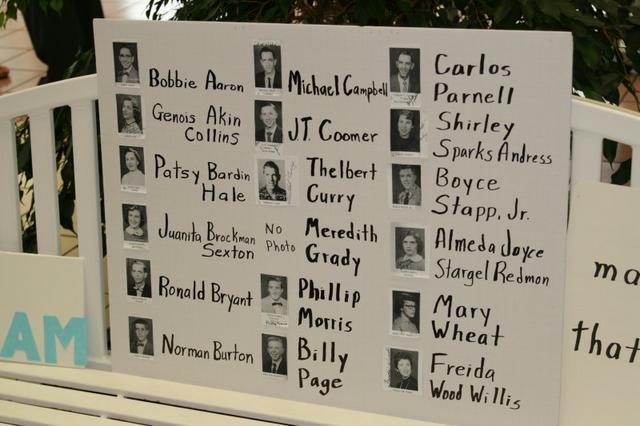 Bobbie Aaron
Genois Akin
Collins
Patsy Bardin
Hale
Juanita Brockman
Sexton
Ronald Bryant
Norman Burton
Michael Campbell
J.T. Coomer
Thelbert
Curry
NO
PHOTO
Meredith
Grady
Phillip
Morris
Billy
Page
Carlos
Parnell
Shirley
Sparks Andress
Boyce
Stapp, Jr.
Almeda Joyce
Stargel Redmon
Mary
Wheat
Freida
Wood Willis
AM
ma
that